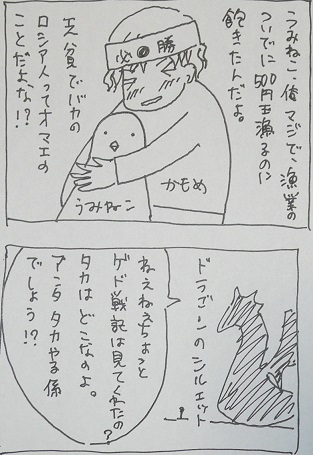 うみねこ、俺マジで、漁業の
ついでに500円玉漁るのに
飽きたんだよ。
必勝
天貧でバカの
ロシア人ってオマエの
ことだよな?!?
かもめ
うみねこ
ドラゴンのシルエット
ねえねえちょっと
ゲド戦記は見てくれたの?
タカはどこなのよ。
アンタタカやる係
でしょう!?